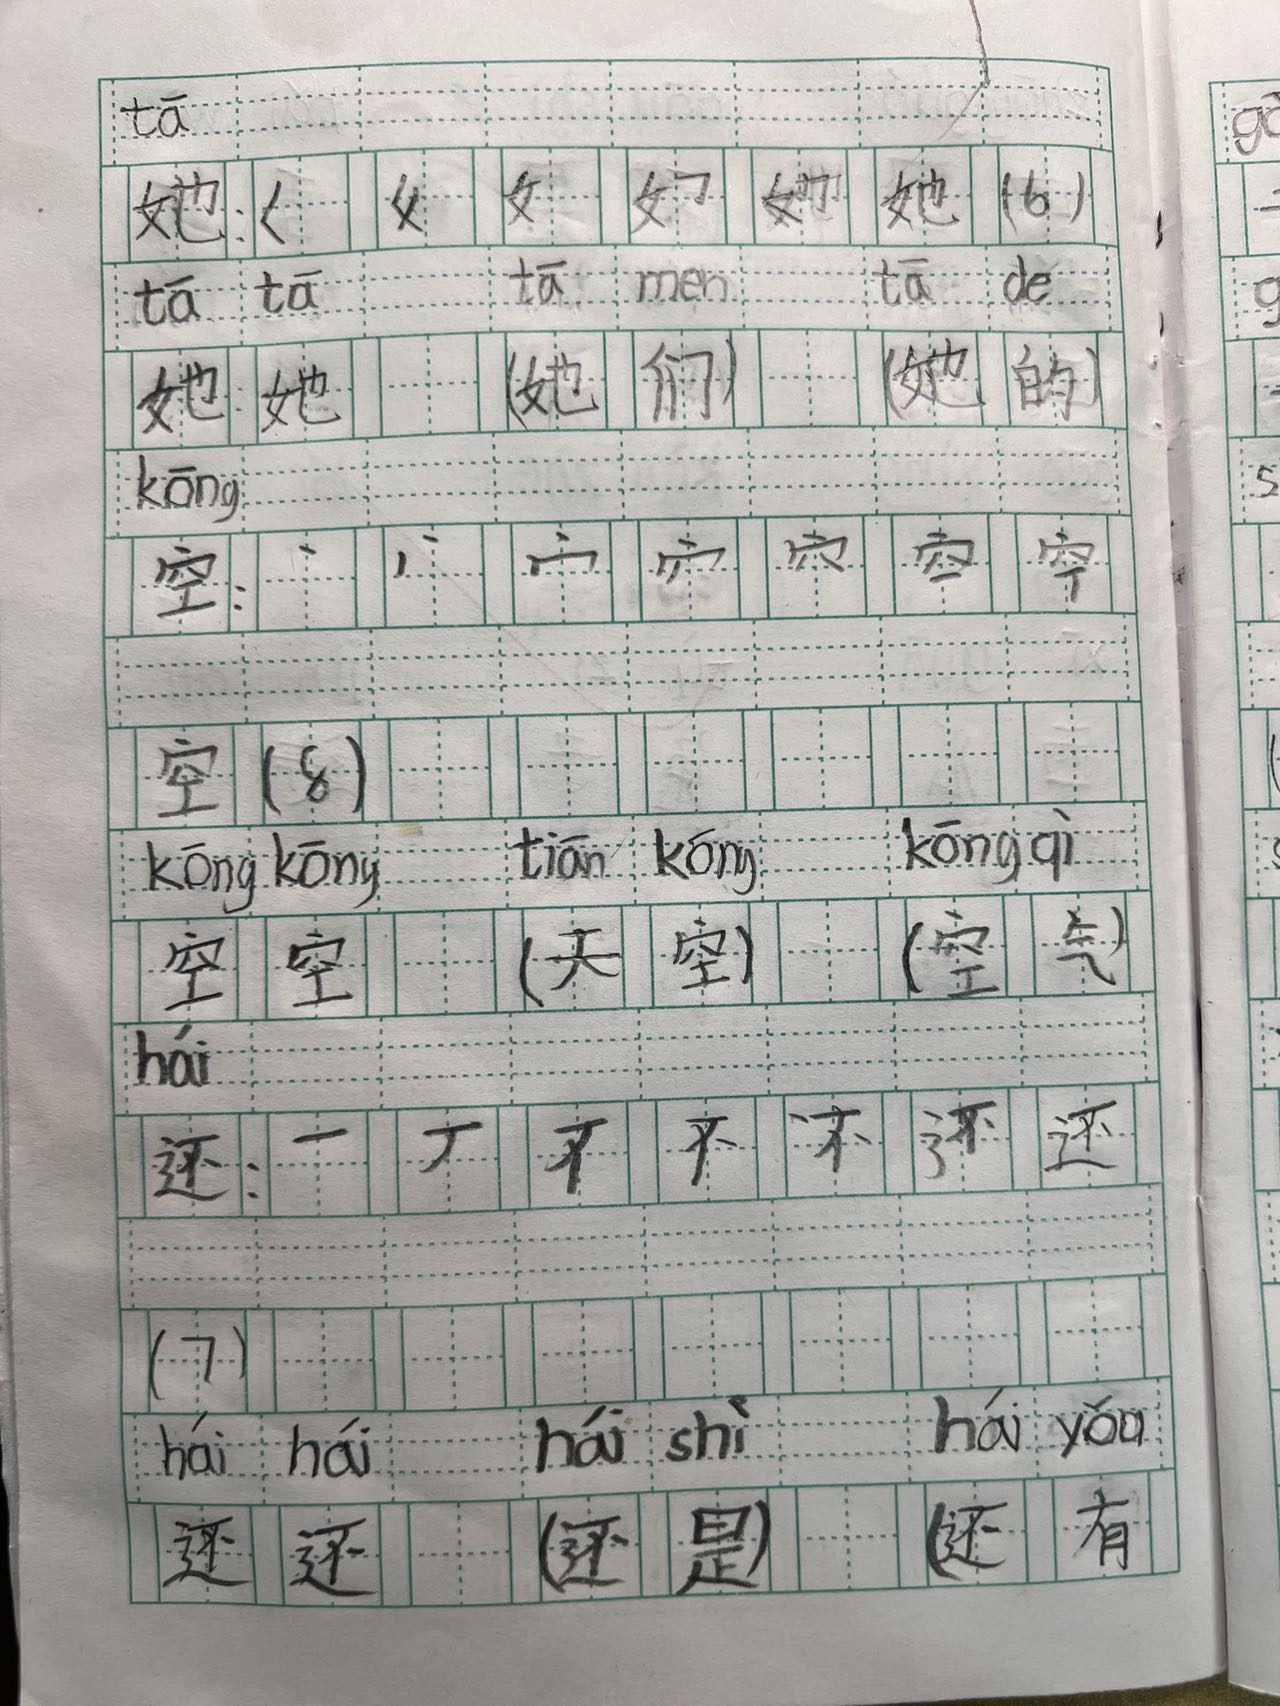 tā
她: ㄑ 乆 女 她 (6)
tā tā tā men tā de
她: 她 (她 们) (她 的)
kōng
空: 丶 宀 穴 空
空 (8)
kōng kōng tiān kōng kōng qì
空 空 (天 空) (空 气)
hái
还: 一 丆 不 还
(7)
hái hái hái shì hái yǒu
还 还 (还 是) (还 有